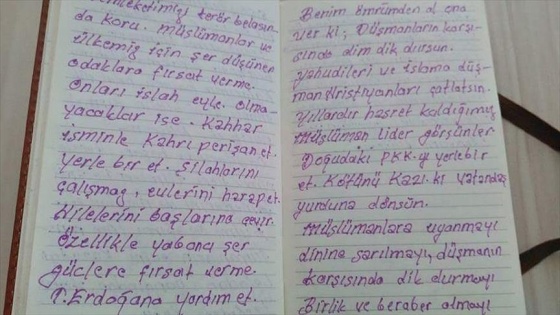 memleketimizi terör belasın-
da koru. müslümanlar ve
ülkemiz için şer düşünen
odaklara fırsat verme.
onları islah eyle. olma-
yacaklar ise. Kahhar
isminle Kahrı perişan et.
yerle bir et. Silahlarını
çalışmaz, evlerini harap et.
Hilelerini başlarına çevir.
özellikle yabancı şer
güçlere fırsat verme.
T. Erdoğana yardım et.
Benim ömrümden al ona
ver ki; Düşmanların karşı-
sında dim dik dursun.
yahudileri ve islama düş-
man Hristiyanları çatlatsın.
yıllardır hasret kaldığımız
Müslüman lider görsünler
Doğudaki PKK-yı yerlebir
et. Kökünü Kazı. ki vatandaş
yurduna dönsün.
Müslümanlara uyanmayı
dinine sarılmayı, düşmanın
karşısında dik durmayı
Birlik ve beraber olmayı